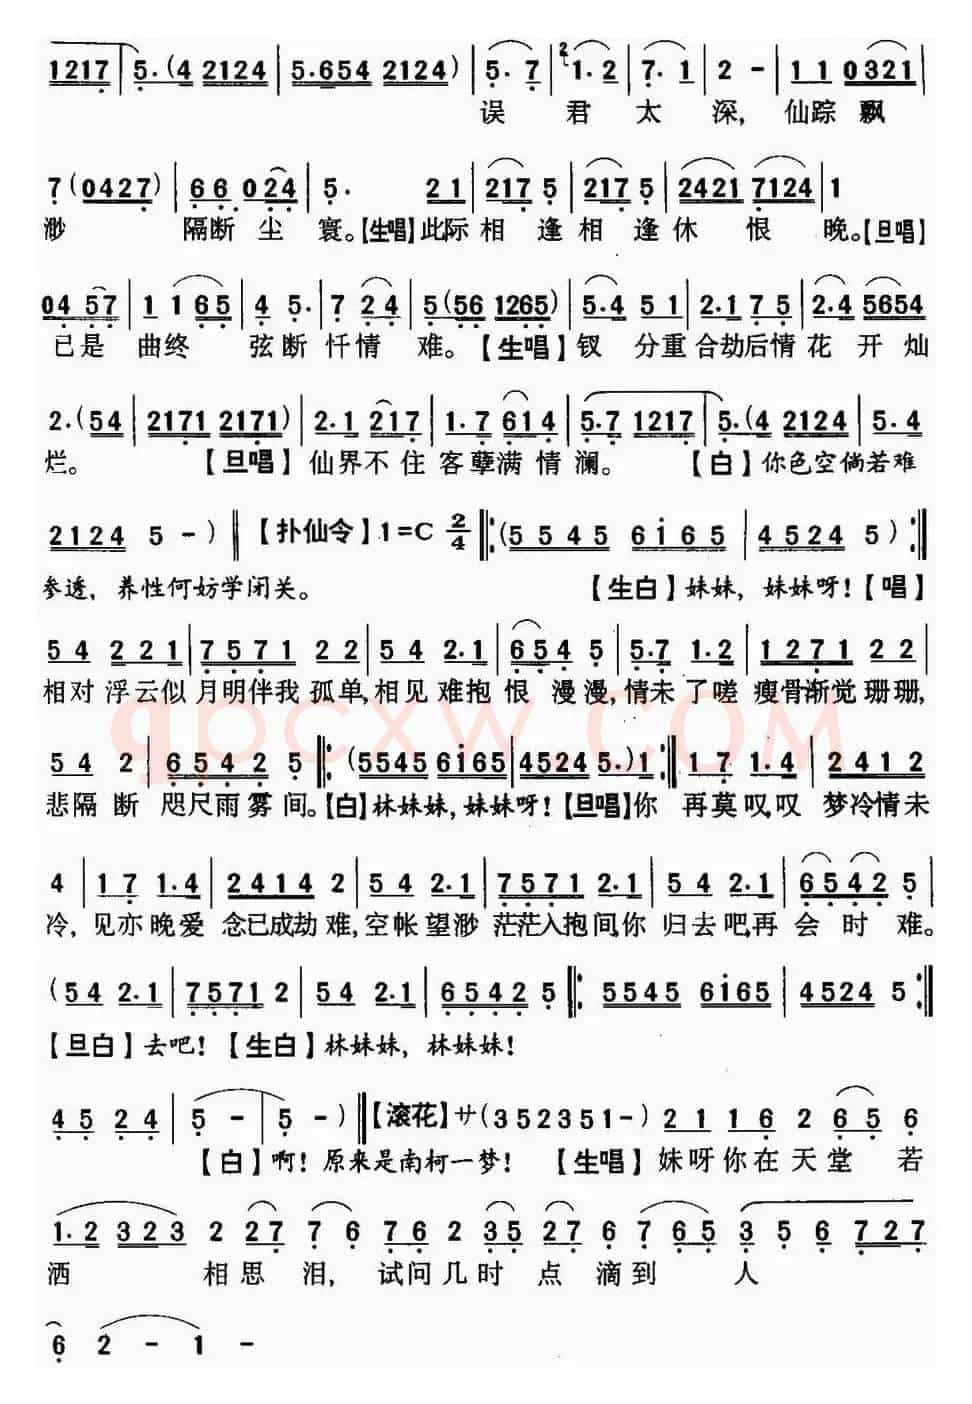 1217 | 5·(4 2124 | 5·654 2124) | 5· 7 | 2 1·2 | 7· 1 | 2 - | 1 1 0321 |
误 君 太 深, 仙踪 飘
7(0427) | 6 6 0 24 | 5· 2 1 | 217 5 | 217 5 | 2421 7124 | 1
渺 隔断 尘 寰。【生唱】此际 相 逢 相 逢 休 恨 晚。【旦唱】
04 57 | 1 1 65 | 4 5· | 7 24 | 5(56 1265) | 5·4 51 | 2·1 75 | 2·4 5654
已是 曲终 弦断 忏情 难。【生唱】钗 分重合劫后情 花 开 灿
2·(54 | 2171 2171) | 2·1 217 | 1·7 614 | 5·7 1217 | 5·(4 2124 | 5·4
烂。 【旦唱】仙界不 住 客孽满 情 澜。 【白】你色空倘若难
2124 5 -) ‖【扑仙令】1=C 2/4 ‖:(5545 6i65 | 4524 5):‖
参透, 养性何妨学闭关。 【生白】妹妹, 妹妹呀!【唱】
54 221 | 7571 22 | 54 2·1 | 654 5 | 5·7 1·2 | 1271 22 |
相对 浮云似 月明伴我 孤单,相见 难抱 恨 漫漫,情未 了嗟 瘦骨渐觉 珊珊,
54 2 | 6542 5 ‖:(5545 6i65 | 4524 5·):‖ 17 1·4 | 2412
悲隔 断 咫尺雨雾 间。【白】林妹妹,妹妹呀!【旦唱】你 再莫叹,叹 梦冷情未
4 | 17 1·4 | 2414 2 | 54 2·1 | 7571 2·1 | 54 2·1 | 6542 5 |
冷, 见亦晚爱 念已成劫 难,空帐望渺 茫茫入抱间,你 归去吧,再 会 时 难。
(54 2·1 | 7571 2 | 54 2·1 | 6542 5 ‖: 5545 6i65 | 4524 5 :‖
【旦白】去吧!【生白】林妹妹, 林妹妹!
45 24 | 5 - | 5 -) ‖【滚花】サ(352351-) 2 1 1 6 2 65 6
【白】啊! 原来是南柯一梦! 【生唱】妹呀你在天堂 若
1·2 323 2 27 76 76 2 35 27 6 765 3 5 6 727
洒 相思 泪, 试问几时 点 滴到 人
6 2 - 1 -
qpcxw.COM